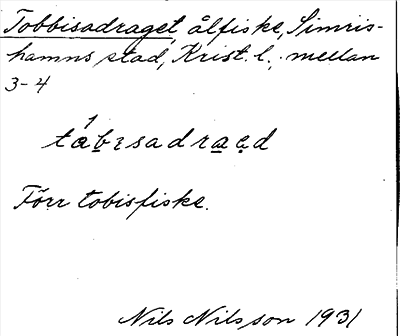 Tobbisadraget, ålfiske, Simris-
hamns stad, Krist. l., mellan
3-4
tábɪsadraꬲd
Förr tobisfiske.
Nils Nilsson 1931